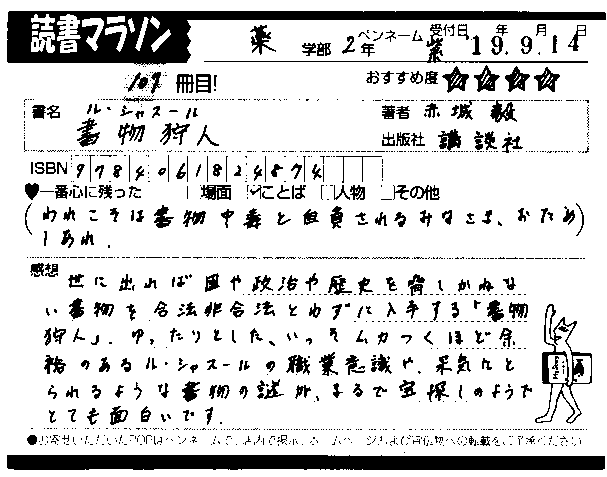 読書マラソン 薬 学部 2年 ペンネーム 紫 受付日 '19年 9月 14日
107 冊目! おすすめ度 ★★★★
書名 ル・シャスール 著者 赤城 毅
書物狩人 出版社 講談社
ISBN 9784061824874
♥一番心に残った □場面 ☑ことば □人物 □その他
(われこそは書物中毒と自負されるみなさま、おため
しあれ.)
感想 世に出れば国や政治や歴史を脅しかねな
い書物を合法非合法とわずに入手する「書物
狩人」. ゆったりとした、いっそムカつくほど余
裕のあるル・シャスールの職業意識や、呆気にと
られるような書物の謎が、まるで宝探しのようで
とても面白いです.
●お寄せいただいたPOPはペンネームで、店内で掲示、ホームページおよび宣伝物への転載をご了承ください